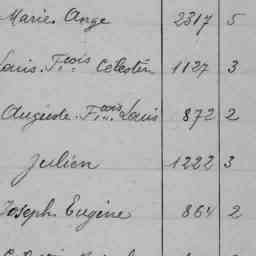 Marie Ange 2317 5
Louis. Fçois Célestin 1127 3
Auguste. Fçois Louis 872 2
Julien 1222 3
Joseph Eugène 864 2